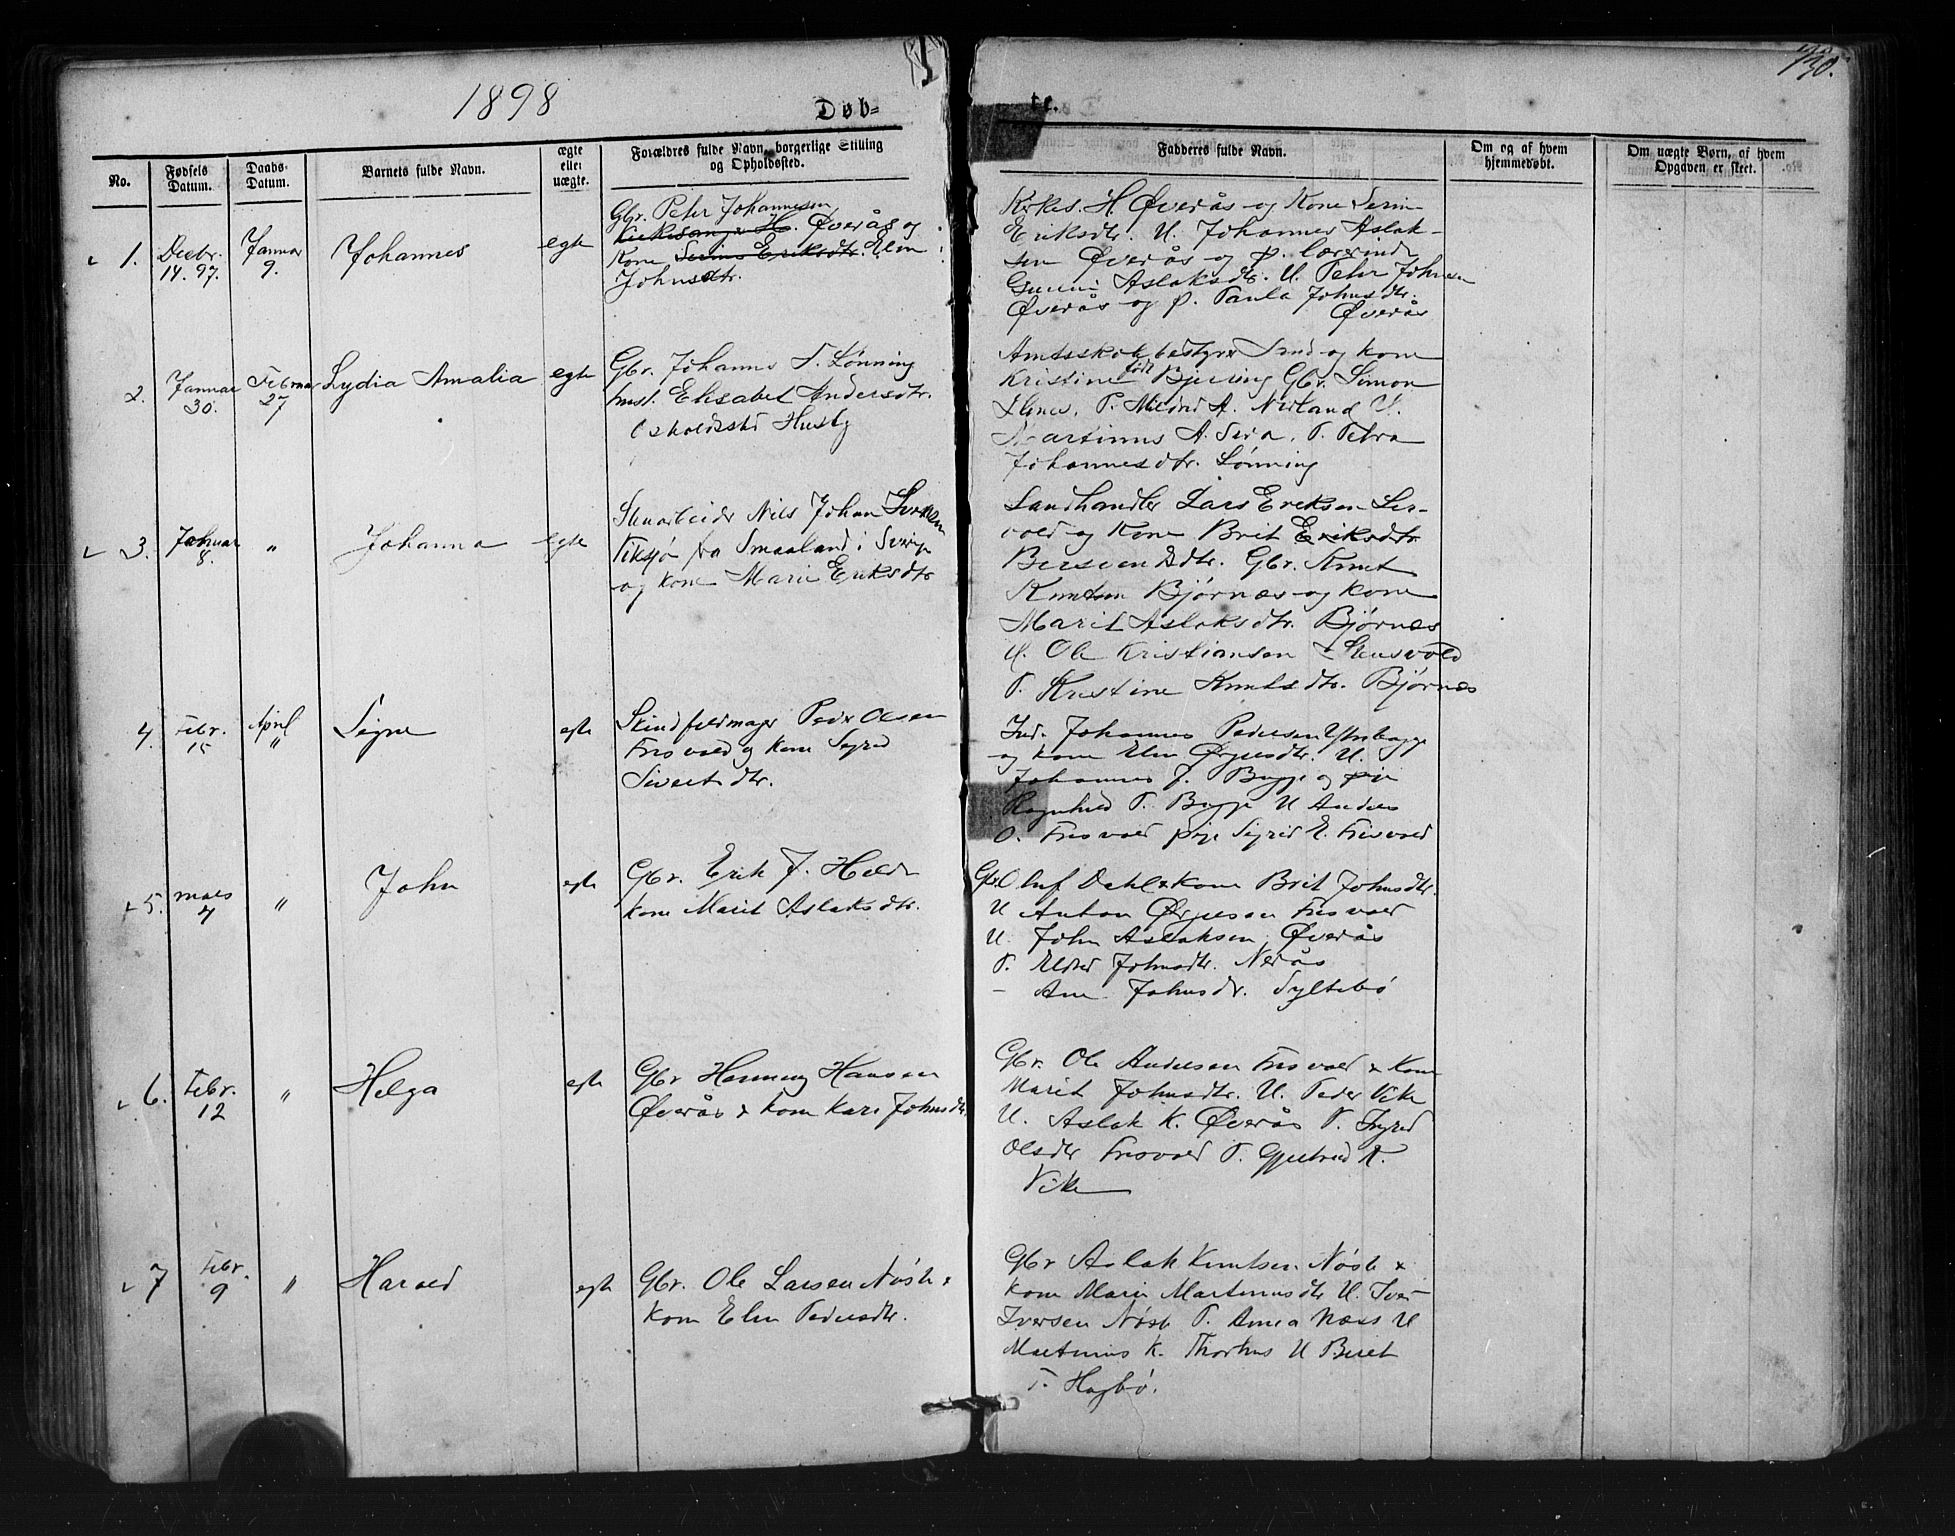 1898
Døb=
te.
130.
No.
Fødsels Datum.
Daabs-Datum.
Barnets fulde Navn.
ægte eller uægte.
Forældres fulde Navn, borgerlige Stilling og Opholdssted.
Fadderes fulde Navn.
Om og af hvem hjemmedøbt.
Om uægte Børn, af hvem Opgaven er skeet.
1.
Decbr. 14. 97.
Januar 9.
Johannes
egte
Gbr. Peter Johannesen
Kirkesanger H. Øverås og
Kone Serine Eriksdtr. Elen
Johnsdtr.
Kirkes. H. Øverås og Kone Serine
Eriksdtr. U. Johannes Aslak-
sen Øverås og p. lærerinde
Gunni Aslaksdtr. U. Peter Johnsen
Øverås og P. Paula Johnsdtr.
Øverås
2.
Januar 30.
Februar 27
Lydia Amalia
egte
Gbr. Johannes T. Lønning
hust. Elisabet Andersdtr.
Opholdssted Husby
Amtsskolebestyrer Sand og kone
Kristine født Bjering Gbr. Simon
P. A. U.
Martinus A. P. Petra
Johannesdtr. Lønning
3.
Januar 8.
"
Johanna
egte
Stenarbeider Nils Johan
fra Smaaland i Sverige
og kone Marie Eriksdtr
Landhandler Lars Eriksen
og Kone Brit Eriksdtr
Gbr. Knut
Knutsen Bjørnes og kone
Marit Aslaksdtr. Bjørnes
U. Ole Kristiansen
P. Kristine Knutsdtr. Bjørnes
4.
Febr. 15
April "
Signe
egte
Skindfeldmager Peder Olsen
Frisvold og kone Sigrid
Sivertdtr.
Ind. Johannes Pedersen
og kone Elen Ørjesdtr. U.
Johannes J. Bugge og pige
Ragnhild P. Bugge U Anders
O. Frisvold pige Sigrid E. Frisvold
5.
mars 4
"
John
egte
Gbr. Erik J. Helde
kone Marit Aslaksdtr.
Gbr Oluf Dahl & Kone Brit Johnsdtr.
U Anton Ørjesen Frisvold
U. John Aslaksen Øverås
P. Eldrid Johnsdtr. Nerås
– Ane Johnsdr. Syltebø
6.
Febr. 12
"
Helga
egte
Gbr Henning Hansen
Øverås & kone Kari Johnsdtr.
Gbr. Ole Andersen Frisvold & Kone
Marit Johnsdtr. U. Peder Vike
U. Aslak K. Øverås P. Ingrid
Olsdtr Frisvold P. Gjertrud K.
Vike
7
Febr. 9
"
Harald
egte
Gbr. Ole Larsen Nøste &
kone Elen Pedersdtr.
Gbr Aslak Knutsen Nøste &
kone Marie Martinusdtr U. Iver
Iversen Nøste P. Anna Næss U
Martinus K. Thorhus U Beret
T. Hagbø.